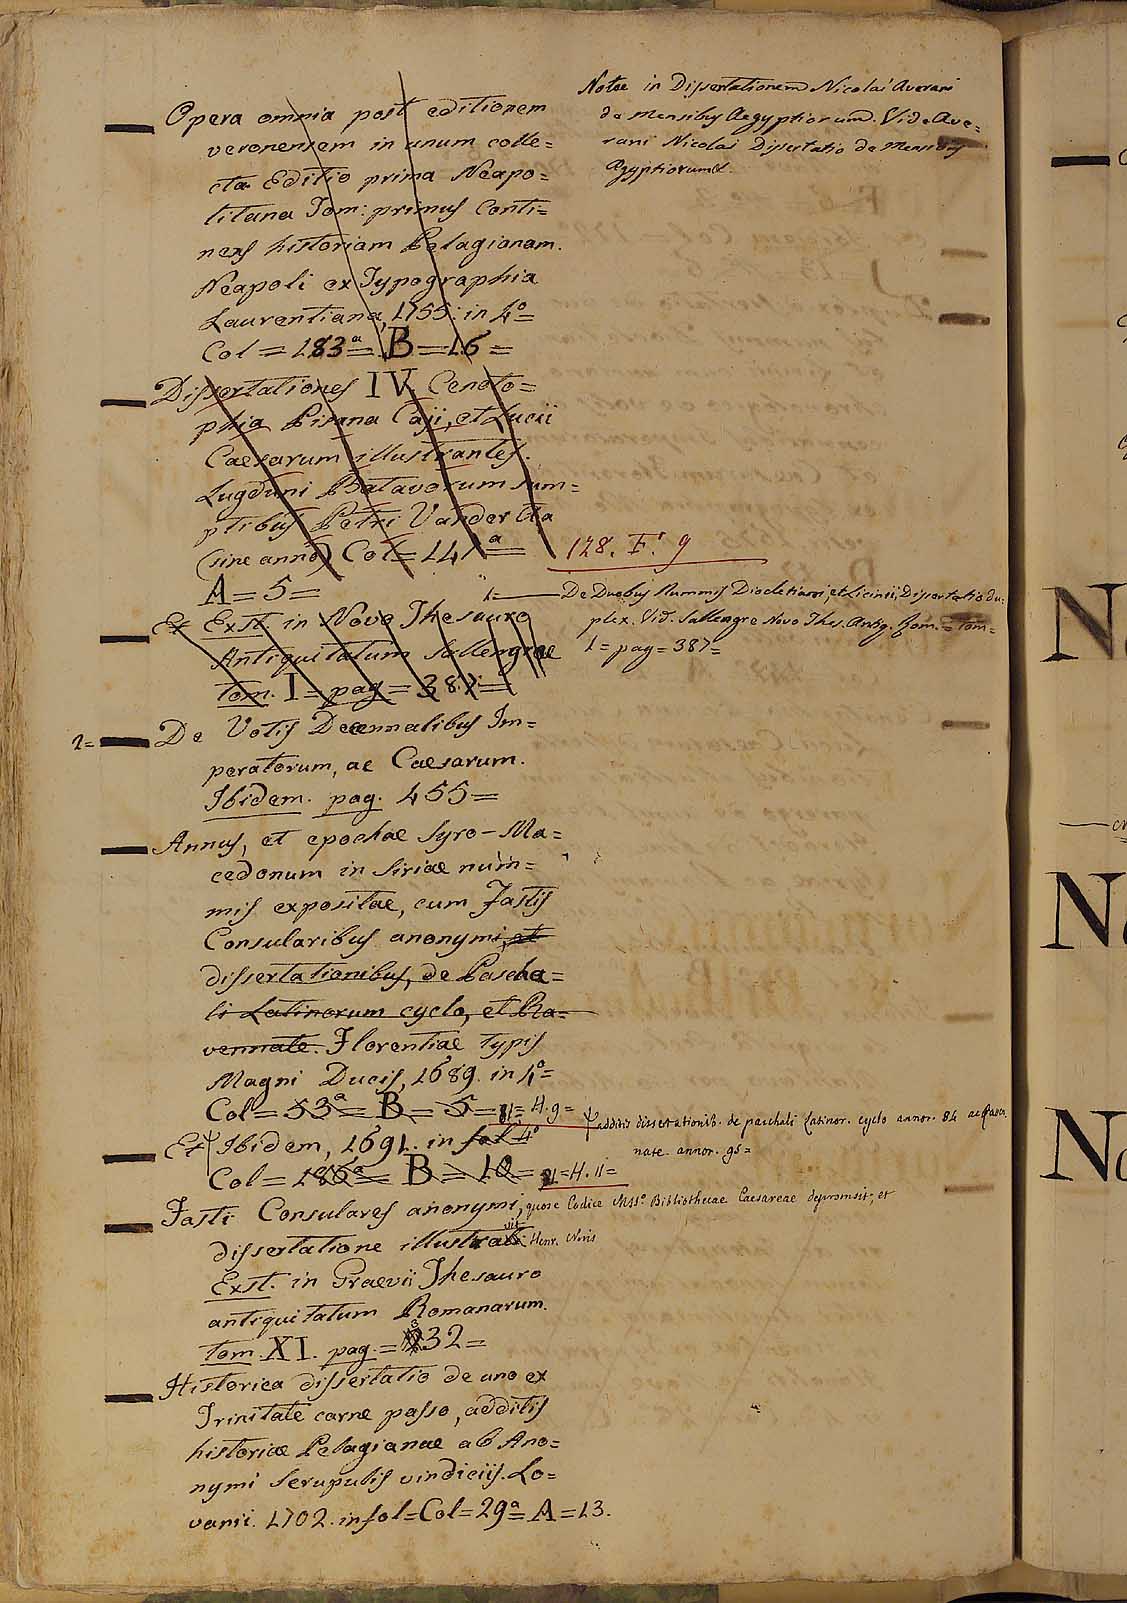 Opera omnia post editionem
veronensem in unum colle=
cta. Editio prima Neapo=
litana Tom: primus Conti=
nens historiam Pelagianam.
Neapoli ex Typographia
Laurentiana, 1755. in 4º=
Col = 183ª = B = 16 =
Dissertationes IV. Cenoto=
phia Pisana Caji, et Lucii
Caesarum illustrantes.
Lugduni Batavorum sum=
ptibus Petri Vander Aa
(sine anno) Col = 141ª =
A = 5 =
Et Exst. in Novo Thesauro
Antiquitatum Sallengrae
tom. I = pag = 387 =
2= De Votis Decennalibus Im=
peratorum, ac Caesarum.
Ibidem. pag. 455 =
Annus, et epochae Syro-Ma=
cedonum in Siriae num=
mis expositae, cum Fastis
Consularibus anonymi, et
dissertationibus, de Pascha=
li Latinorum cyclo, et Ra=
vennate. Florentiae Typis
Magni Ducis, 1689. in 4º=
Col = 53ª = B = 5 = 81 = H. 9 =
Et Ibidem, 1691. in fol 4º
Col = 186ª = B = 10 = 21 = H. 11 =
Fasti Consulares anonymi, quos e Codice MSSº Bibliothecae Caesareae depromsit, et
dissertatione illustravit Henr. Noris
Exst. in Graevii Thesauro
antiquitatum Romanarum.
tom. XI. pag. = 232 =
Historica dissertatio de uno ex
Trinitate carne passo, additis
historiae Pelagianae ab Ano=
nymi Scrupulis vindiciis. Lo=
vanii. 1702. in fol = Col = 29ª = A = 13.
Notae in Dissertationem Nicolai Averani
de Mensibus Aegyptiorum. Vide Ave=
rani Nicolai Dissertatio de Mensibus
Aegyptiorum.
128. F. 9
1= De Duobus Nummis Diocletiani, et Licinii, Dissertatio du=
plex. Vid. Sallengre Novo Thes. Antiq. Rom. = Tom=
1 = pag = 387=
additis dissertationib. de paschali Latinor. cyclo annor. 84 ac Raven
nate annor. 95 =